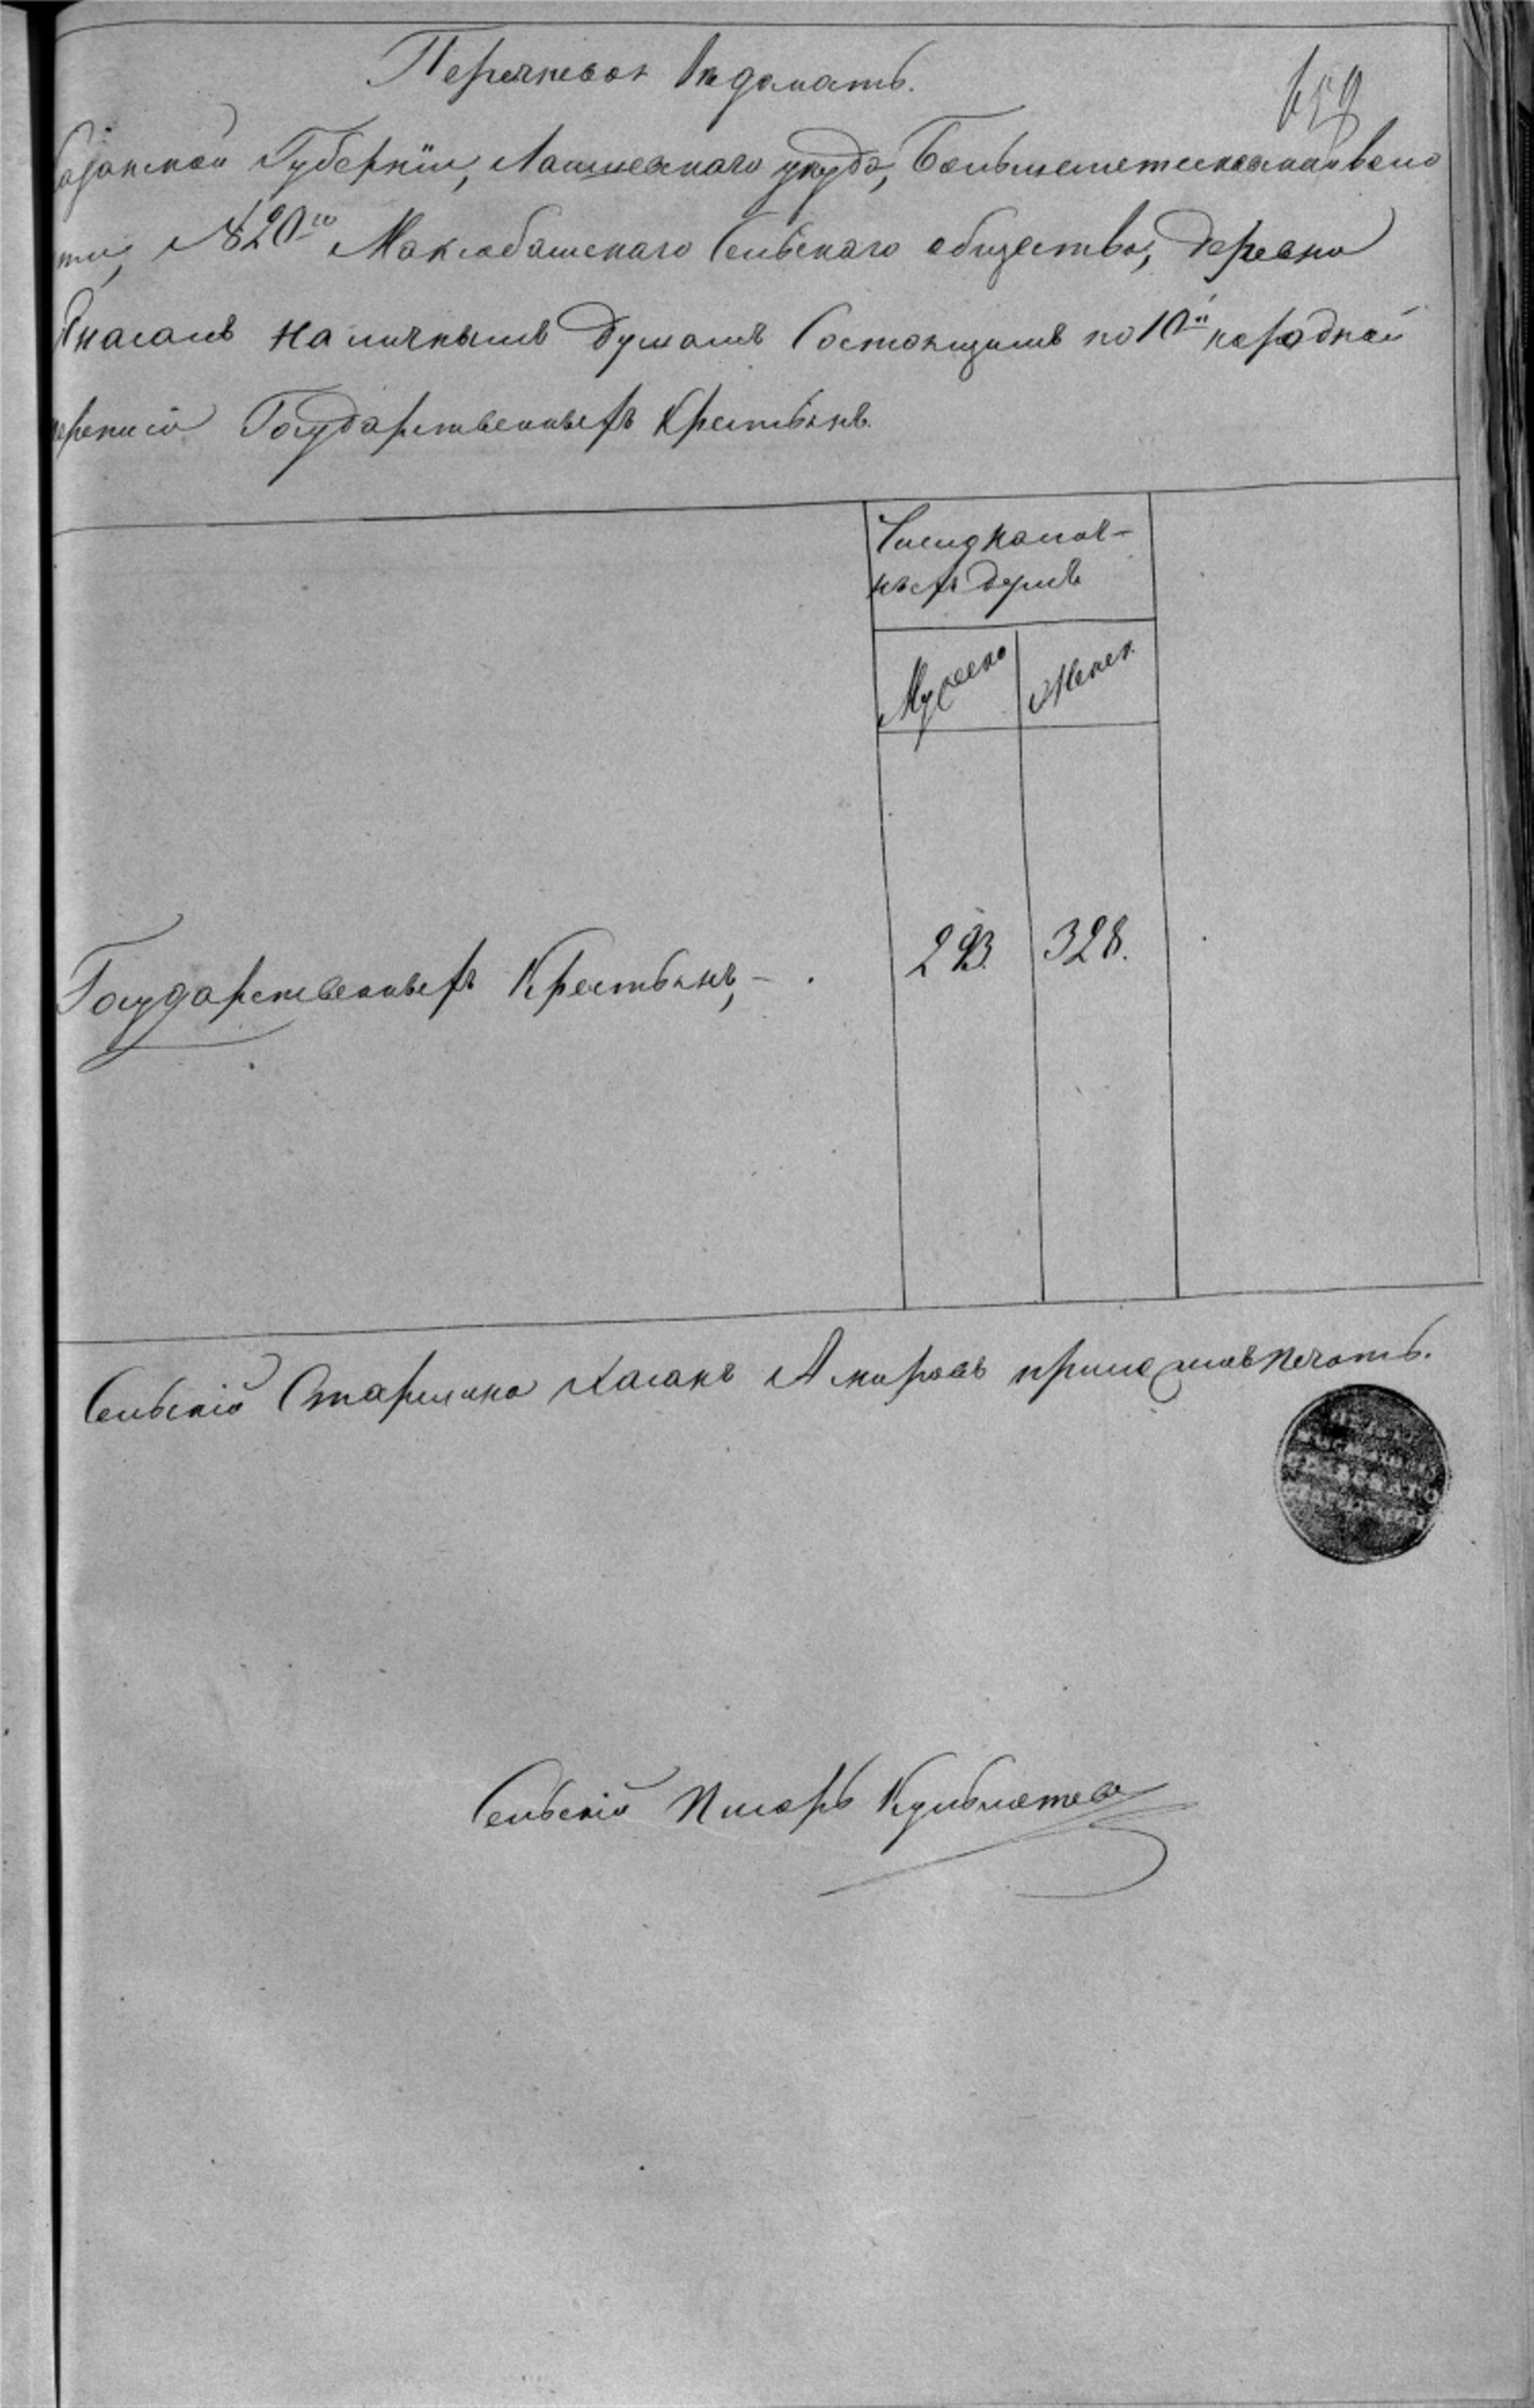 Перечневая Ведомость.
659
Казанской Губерніи, Лаишевскаго уезда, Большеметескинской воло
сти, № 20го Сельскаго общества, деревни
наличнымъ душамъ состоящимъ по 10й народной
переписи Государственныхъ Крестьянъ.
Число налич-
ныхъ душъ
Мужеска
Женск.
Государственныхъ Крестьянъ, -
293.
328.
Сельскій Старшина Хасанъ Амировъ приложилъ печать.
Сельскій Писарь